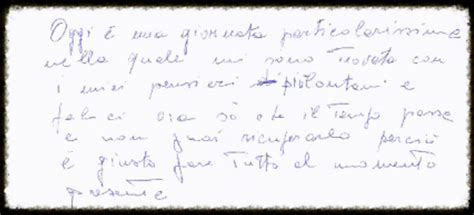 Oggi è una giornata particolarissima
nella quale mi sono trovata con
i miei pensieri più lontani e
felici ora sò che il tempo passa
e non puoi recuperarlo perciò
è giusto fare tutto al momento
presente